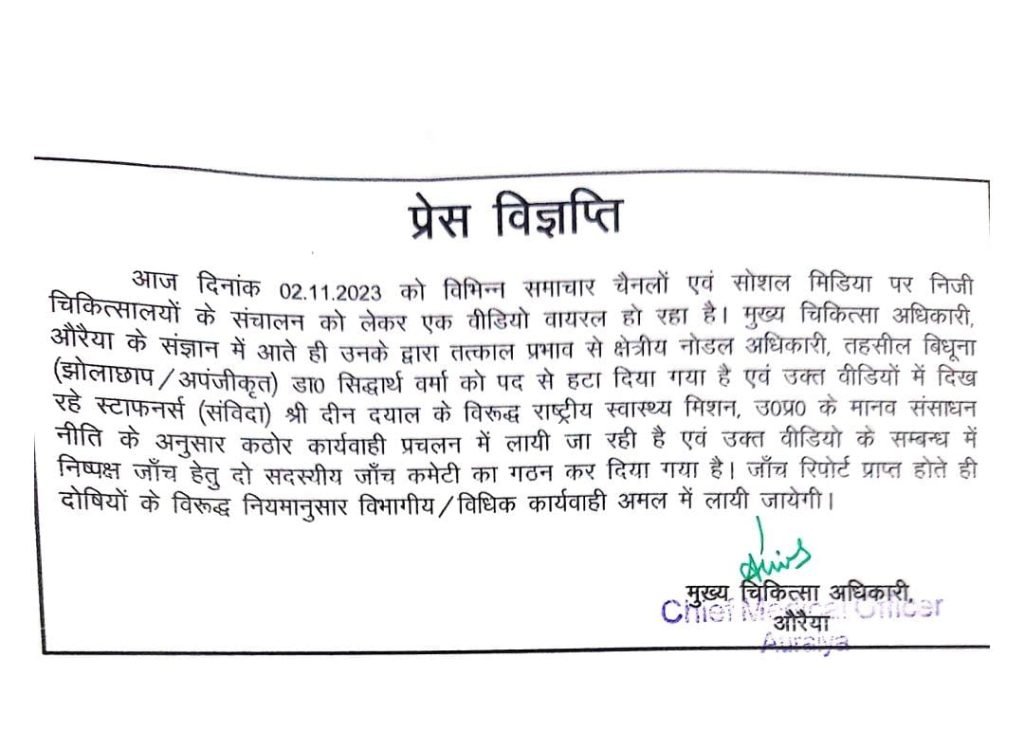 प्रेस विज्ञप्ति
आज दिनांक 02.11.2023 को विभिन्न समाचार चैनलों एवं सोशल मिडिया पर निजी
चिकित्सालयों के संचालन को लेकर एक वीडियो वायरल हो रहा है। मुख्य चिकित्सा अधिकारी,
औरैया के संज्ञान में आते ही उनके द्वारा तत्काल प्रभाव से क्षेत्रीय नोडल अधिकारी, तहसील बिधूना
(झोलाछाप/अपंजीकृत) डा0 सिद्धार्थ वर्मा को पद से हटा दिया गया है एवं उक्त वीडियों में दिख
रहे स्टाफनर्स (संविदा) श्री दीन दयाल के विरूद्ध राष्ट्रीय स्वास्थ्य मिशन, उ0प्र0 के मानव संसाधन
नीति के अनुसार कठोर कार्यवाही प्रचलन में लायी जा रही है एवं उक्त वीडियो के सम्बन्ध में
निष्पक्ष जाँच हेतु दो सदस्यीय जाँच कमेटी का गठन कर दिया गया है। जाँच रिपोर्ट प्राप्त होते ही
दोषियों के विरूद्ध नियमानुसार विभागीय/विधिक कार्यवाही अमल में लायी जायेगी।
मुख्य चिकित्सा अधिकारी,
Chief Medical Officer
औरैया
Auraiya